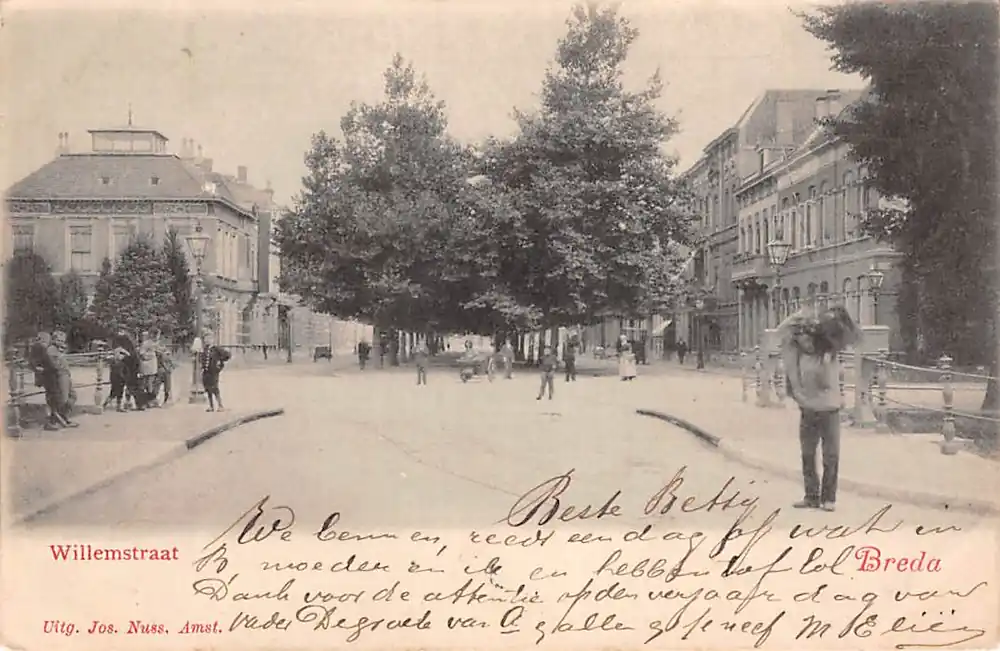 Beste Betty
We benn en reeds een dag of wat in
B moeder en ik en hebben tof lol
Dank voor de attentie op den verjaardag van
vader De groete van a
Willemstraat
Breda
Uitg. Jos. Nuss, Amst.